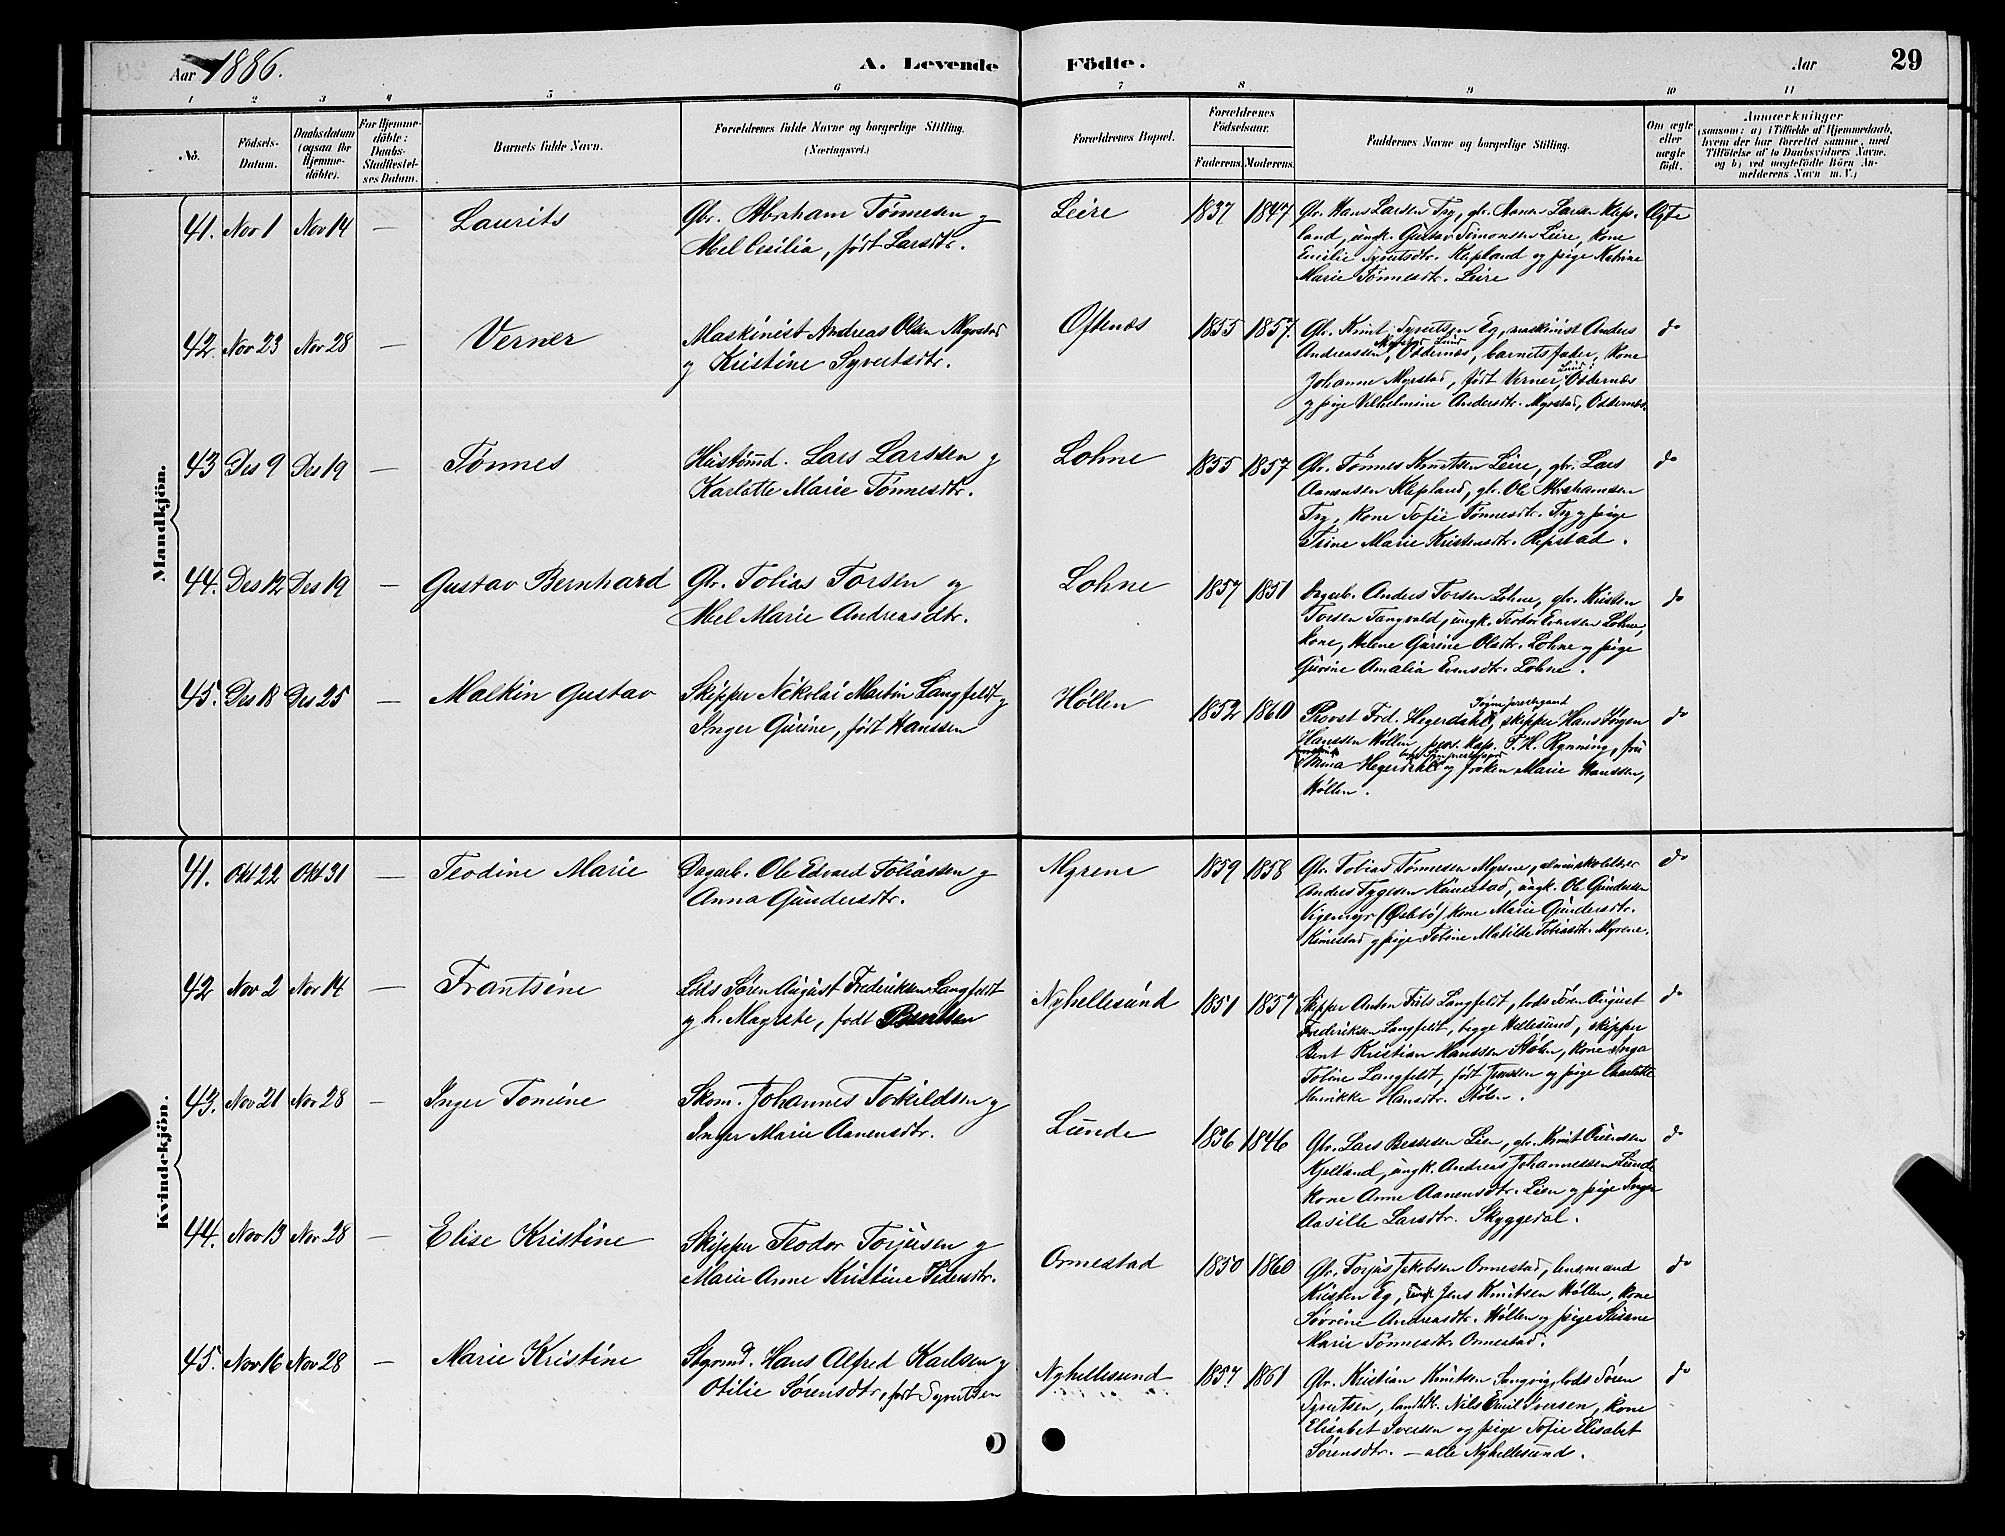 Aar 1886.
A. Levende Födte.
Aar
29
1 2 3 4 5 6 7 8 9 10 11
No.
Födsels-Datum.
Daabsdatum (ogsaa for Hjemmedöbte).
For Hjemmedöbte: Daabs-Stadfæstelses Datum.
Barnets fulde Navn.
Forældrenes fulde Navne og borgerlige Stilling. (Næringsvei.)
Forældrenes Bopæl.
Forældrenes Födselsaar.
Faderens. Moderens.
Faddernes Navne og borgerlige Stilling.
Om ægte eller uægte født.
Anmærkninger
(saasom: a) i Tilfælde af Hjemmedaab, hvem der har forrettet samme, med Tilföielse af to Daabsvidners Navne, og b) ved uægtefödte Börn Anmelderens Navn m. V.)
Mandkjön.
41. Nov 1 Nov 14 — Laurits
Gbr. Abraham Tønnesen og
Abel Cecilia, født Larsdtr.
Leire 1837 1847
Gbr. Hans Larsen Try, gbr. Aanen Larsen Klep-
land, ungk. Gustav Simonsen Leire, kone
Emilie Syvertsdtr. Klepland og pige Katrine
Marie Tønnesdtr. Leire
Ægte
42. Nov 23 Nov 28 — Verner
Maskinist Andreas Olsen Myrstad
og Kristine Syvertsdtr.
Oftenæs 1855 1857.
Gbr. Knut Syvertsen Eg, maskinist Anders
Andreassen Myrstad Lund, Oddernæs, barnets fader, kone
Johanne Myrstad, født Verner, Lund, Oddernæs
og pige Vilhelmine Andersdtr. Myrstad, Oddernæs.
do
43 Des 9 Des 19 — Tønnes
Hustømd. Lars Larssen og
Karlotte Marie Tønnesdtr.
Lohne 1855 1857
Gbr. Tønnes Knutsen Leire, gbr. Lars
Aanensen Klepland, gbr. Ole Abrahamsen
Try, kone Sofie Tønnesdtr. Try og pige
Trine Marie Kristensdtr. Repstad.
do
44. Des 12 Des 19 — Gustav Bernhard
Gbr. Tobias Torsen og
Abel Marie Andreasdtr.
Lohne 1857 1851
Dagarb. Anders Torsen Lohne, gbr. Kristen
Torsen Tangvald, ungk. Teodor Evensen Lohne,
kone, Helene Gurine Olsdtr. Lohne og pige
Gurine Amalia Evensdtr. Lohne.
do
45. Des 18 Des 25 — Malkin Gustav
Skipper Nikolai Martin Langfeldt og
Inger Gurine, født Hanssen
Høllen 1852 1860
Provst Frd. Hegerdahl, Søgne prestegaard skipper Hans Jørgen
Hanssen Høllen, pers. kap. P. H. Rynning, fru
Mina Hegerdahl og frøken Marie Hanssen,
Høllen.
do
Kvindekjön.
41. Okt 22 Okt 31 — Teodine Marie
Dagarb. Ole Edvard Tobiassen og
Anna Gundersdtr.
Myrene 1859 1858
Gbr. Tobias Tønnesen Myrene, almueskolelærer
Anders Tygesen Kimestad, ungk. Ole Gundersen
Vigemyr (Øslebø) kone Marie Gundersdtr.
Kimestad og pige Tobine Matilde Tobiasdtr. Myrene.
do
42 Nov 2 Nov 14 — Frantsine
Lods Søren August Frederiksen Langfeldt
og h. Magrete, født Bentsen
Nyhellesund 1851 1857
Skipper Anton Frits Langfeldt, lods Søren August
Frederiksen Langfeldt, begge Hellesund, skipper
Bent Kristian Hanssen Stølen, kone Inga
Tobine Langfeldt, født Jenssen og pige Charlotte
Henrikke Hansdtr. Stølen.
do
43. Nov 21 Nov 28 — Inger Tomine
Skom. Johannes Torkildsen og
Inger Marie Aanensdtr.
Lunde 1836 1846
Gbr. Lars Bessesen Lien, gbr. Knut Ouensen
Kjelland, ungk. Andreas Johannessen Lunde
kone Anne Aanensdtr. Lien og pige Inger
Aasille Larsdtr. Skyggedal.
do
44. Nov 13 Nov 28 — Elise Kristine
Skipper Teodor Torjusen og
Marie Anne Kristine Pedersdtr.
Ormestad 1850 1860
Gbr. Torjus Jakobsen Ormestad, lensmand
Kristen Eg, ungk. Jens Knutsen Høllen, kone
Sovrine Andreasdtr. Høllen og pige Susane
Marie Tønnesdtr. Ormestad.
do
45. Nov 16 Nov 28 — Marie Kristine
Styrmd. Hans Alfred Karlsen og
Otilie Sørensdtr, født Syvertsen
Nyhellesund 1857 1861
Gbr. Kristian Knutsen Langvig, lods Søren
Syvertsen, landhdl. Nils Emil Iversen, kone
Elisabet Iversen og pige Sofie Elisabet
Sørensdtr. — alle Nyhellesund.
do